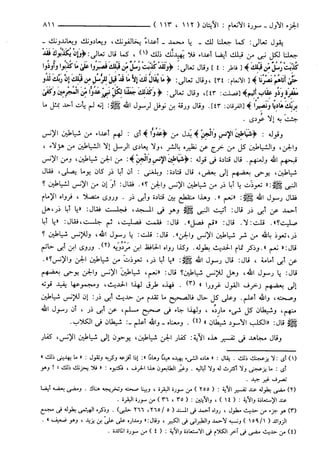 الجزء الأول - سورة الأنعام : الآيتان (١١٢ ، ١١٣) ٨١١
يقول تعالى: كما جعلنا لك - يا محمد - أعداءً يخالفونك، ويعادونك ويعاندونك -
جعلنا لكل نبي من قبلك أيضا أعداء، فلا يهيدنَّك ذلك (١)، كما قال تعالى: ﴿وَإِن يُكَذِّبُوكَ فَقَدْ
كُذِّبَتْ رُسُلٌ مِّن قَبْلِكَ﴾ [فاطر: ٤] وقال تعالى: ﴿وَلَقَدْ كُذِّبَتْ رُسُلٌ مِّن قَبْلِكَ فَصَبَرُوا عَلَىٰ مَا كُذِّبُوا وَأُوذُوا
حَتَّىٰ أَتَاهُمْ نَصْرُنَا﴾ [الأنعام: ٣٤]، وقال تعالى: ﴿مَّا يُقَالُ لَكَ إِلَّا مَا قَدْ قِيلَ لِلرُّسُلِ مِن قَبْلِكَ إِنَّ رَبَّكَ لَذُو
مَغْفِرَةٍ وَذُو عِقَابٍ أَلِيمٍ﴾ [فصلت: ٤٣]، وقال تعالى: ﴿وَكَذَٰلِكَ جَعَلْنَا لِكُلِّ نَبِيٍّ عَدُوًّا مِّنَ الْمُجْرِمِينَ وَكَفَىٰ
بِرَبِّكَ هَادِيًا وَنَصِيرًا﴾ [الفرقان: ٤٣]. وقال ورقة بن نوفل لرسول الله ﷺ: إنه لم يأت أحد بمثل ما
جئت به إلا عُودي.
وقوله: ﴿شَيَاطِينَ الْإِنسِ وَالْجِنِّ﴾ بَدل من ﴿عَدُوًّا﴾ أي: لهم أعداء من شياطين الإنس
والجن، والشياطين كل من خرج عن نظيره بالشر، ولا يعادي الرسل إلا الشياطين من هؤلاء،
قبحهم الله ولعنهم. قال قتادة في قوله: ﴿شَيَاطِينَ الْإِنسِ وَالْجِنِّ﴾: من الجن شياطين، ومن الإنس
شياطين، يوحي بعضهم إلى بعض، قال قتادة: وبلغني: أن أبا ذر كان يوما يصلي، فقال
النبي ﷺ: «تعوذت يا أبا ذر من شياطين الإنس والجن ؟». فقال: أوَ إن من الإنس لشياطين ؟
فقال رسول الله ﷺ: «نعم». وهذا منقطع بين قتادة وأبي ذر. وروى متصلا، فرواه الإمام
أحمد عن أبي ذر قال: أتيت النبي ﷺ وهو في المسجد، فجلست فقال: «يا أبا ذر، هل
صليت؟». قلت: لا. قال: «قم فصلِّ». قال: فقمت فصليت، ثم جلست، فقال: «يا أبا
ذر، تعوذ بالله من شر شياطين الإنس والجن». قال: قلت: يا رسول الله، وللإنس شياطين ؟
قال: «نعم». وذكر تمام الحديث بطوله. وكذا رواه الحافظ ابن مَرْدُويه (٢). وروى ابن أبي حاتم
عن أبي أمامة، قال: قال رسول الله ﷺ: «يا أبا ذر، تعوذت من شياطين الجن والإنس؟».
قال: يا رسول الله، وهل للإنس شياطين؟ قال: «نعم، شياطينَ الإنس والجن يوحي بعضهم
إلى بعضهم زخرف القول غرورا» (٣). فهذه طرق لهذا الحديث، ومجموعها يفيد قوته
وصحته، والله أعلم. وعلى كل حال فالصحيح ما تقدم من حديث أبي ذر: إن للإنس شياطين
منهم، وشيطان كل شيء مارده، ولهذا جاء في صحيح مسلم، عن أبي ذر، أن رسول الله
ﷺ قال: «الكلب الأسود شيطان» (٤). ومعناه - والله أعلم -: شيطان في الكلاب.
وقال مجاهد في تفسير هذه الآية: كفار الجن شياطين، يوحون إلى شياطين الإنس، كفار
(١) أي: لا يزعجنك ذلك. يقال: «هاده الشيء يهيده هيدًا وهادًا»: إذا أفزعه وكربه. وتقول: «ما يهيدني ذلك»
أي: ما يزعجني ولا أكترث له ولا أباليه.
(٢) مضى بطوله عند تفسير الآية: (٢٥٥) من سورة البقرة، وبينا صحته وتخريجه هناك. ومضى بعضه أيضا
عند الاستعاذة والآية: (١٤)، والآيتين: (٣٥، ٣٦) من سورة البقرة.
(٣) هو جزء من حديث مطول، رواه أحمد في المسند (٥ / ٢٦٥، ٢٦٦ حلبي). وذكره الهيثمي بطوله في مجمع
الزوائد (١ / ١٥٩) ونسبه لأحمد والطبراني في الكبير، وقال: «ومداره على علي بن يزيد، وهو ضعيف».
(٤) من حديث مضى في آخر الكلام في الاستعاذة والآية: (٤) من سورة المائدة.